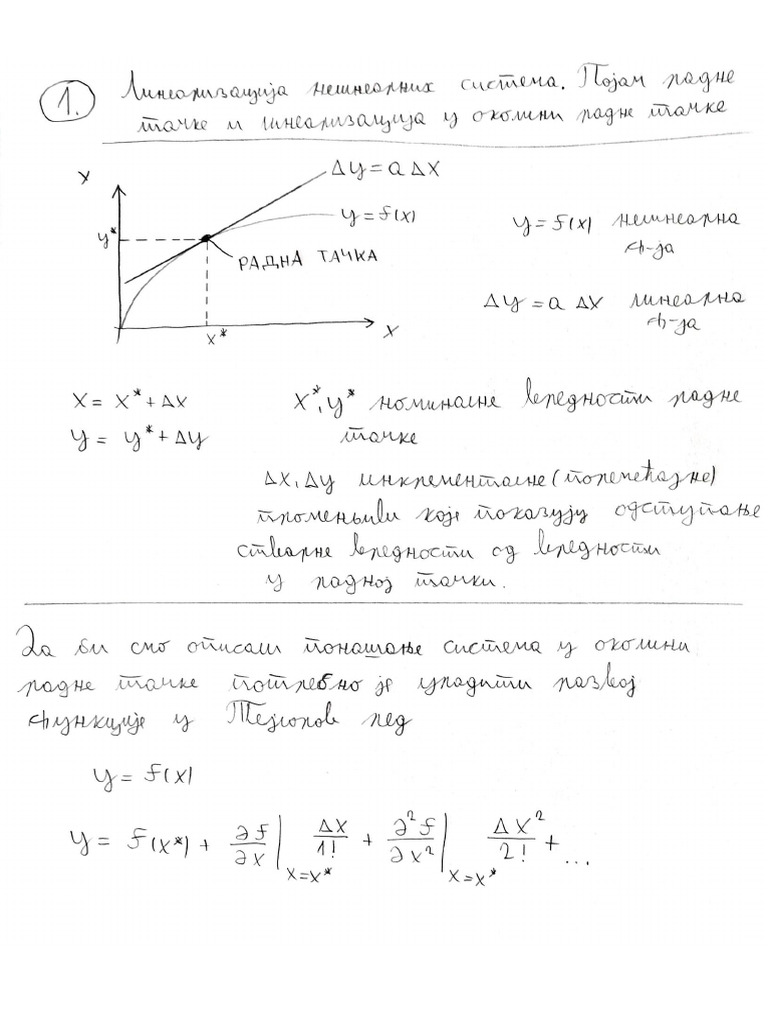 1. Линеаризација нелинеарних система. Појам радне
тачке и линеаризација у околини радне тачке
y
Δy = a Δx
y = f(x)
y*
РАДНА ТАЧКА
x*
x
y = f(x) нелинеарна
ф-ја
Δy = a Δx линеарна
ф-ја
x = x* + Δx
y = y* + Δy
x*, y* номиналне вредности радне
тачке
Δx, Δy инкременталне (поремећајне)
променљиви које показују одступање
стварне вредности од вредности
у радној тачки.
Да би смо описали понашање система у околини
радне тачке потребно је урадити развој
функције у Тејлоров ред
y = f(x)
y = f(x*) + ∂f/∂x |x=x* Δx/1! + ∂²f/∂x² |x=x* Δx²/2! + ...